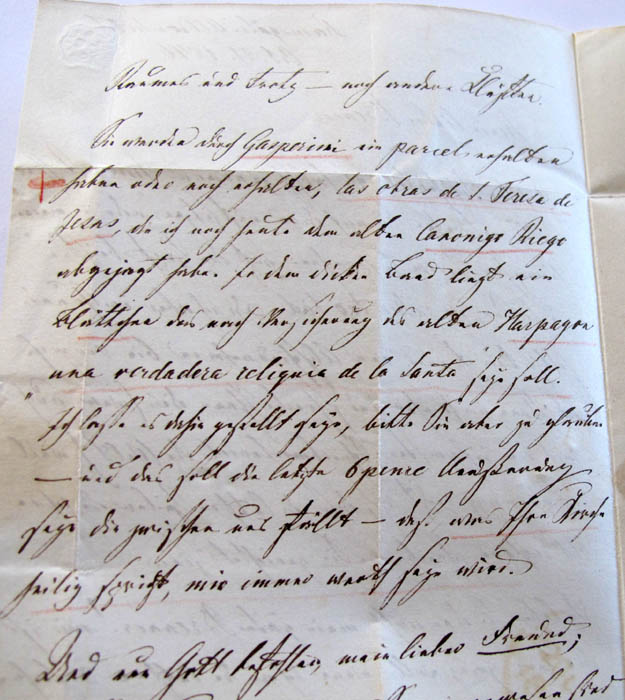 Raumes und Trotz – noch andern Kläften.
Sie werden durch Gasparini ein parcel erhalten
haben oder noch erhalten, las obras de S. Teresa de
Jesus, die ich noch heute dem alten Canonigo Riego
abgejagt habe. In dem dicken Band liegt ein
Blättchen das nach Versicherung des alten Harpagon
"una verdadera reliquia de la Santa" seyn soll.
Ich lasse es dahin gestellt seyn, bitte Sie aber zu glauben
– und das soll die letzte Äußerung
seyn die zwischen uns fällt – daß was Ihre Kirche
heilig spricht, mir immer werth seyn wird.
Und nun Gott befohlen, mein lieber Freund;